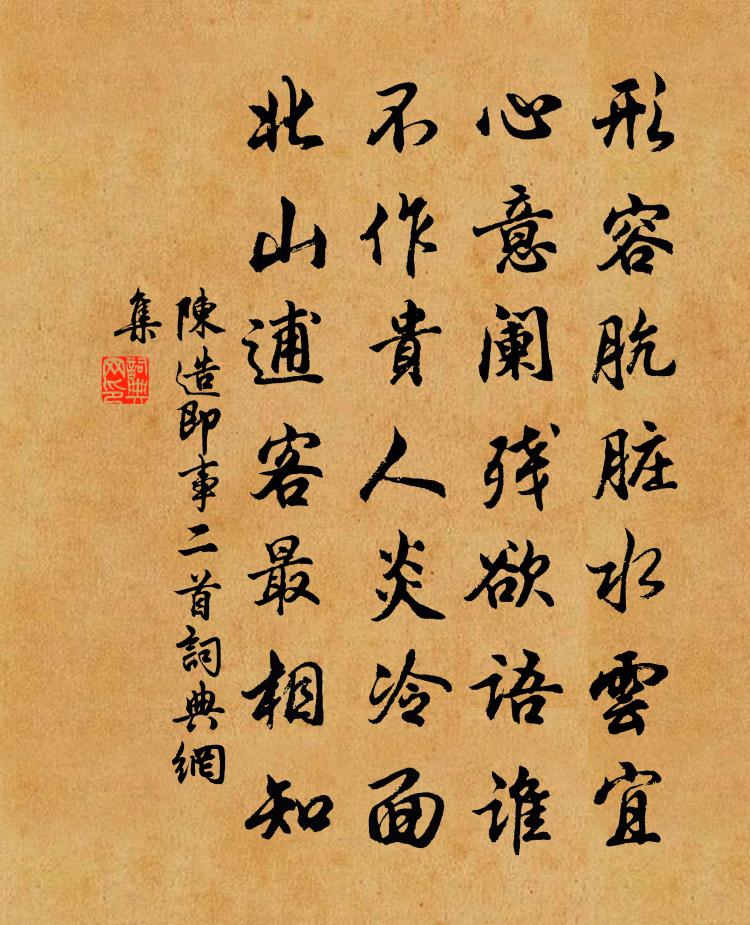 形容肮脏水雲宜
心意阑残欲语谁
不作貴人炎冷面
北山逋客最相知
陳造即事二首詞典網
集
詞典网印